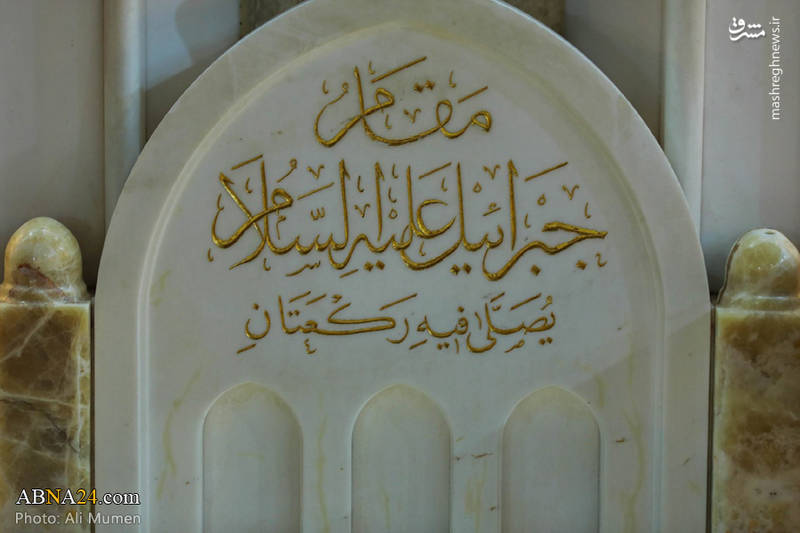 مشرق
mashreghnews.ir
مقام
جبرائيل عليه السلام
يُصَلَّى فيهِ رَكْعَتَانِ
ABNA24.com
Photo: Ali Mumen